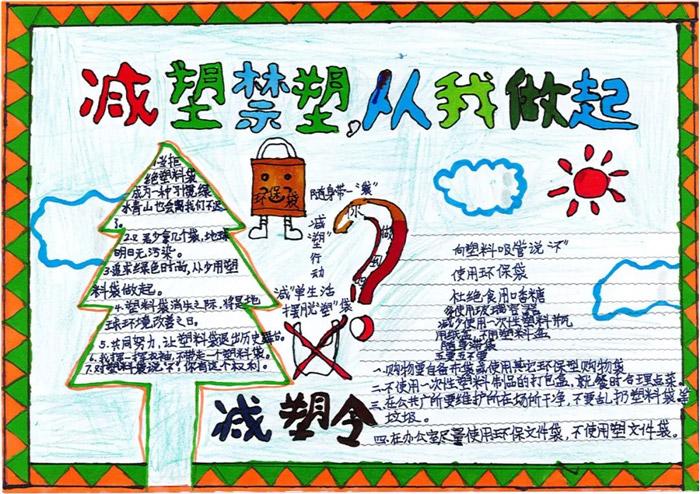 减塑禁塑，从我做起
1.当拒
绝塑料袋
成为一种习惯，绿
水青山也会离我们不远
了。
2.今天少拿几个袋，地球
明日无污染。
3.追求绿色时尚，从少用塑
料袋做起。
4.塑料袋消失之际，将是地
球环境改善之日。
5.共同努力，让塑料袋退出历史舞台。
6.我挥一挥衣袖，不带走一个塑料袋。
7.对塑料袋说"不"，你有这个权利。
环保袋
随身带一"袋"
减"塑"行动
减"单生活
摆脱"塑"袋
你做到
减塑令
向塑料吸管说"不"
使用环保袋
杜绝食用口香糖
多使用玻璃容器
减少使用一次性塑料瓶
用纸盒，不用塑料盒
随身带袋
五要五不要
一.购物要自备布袋或使用其它环保型购物袋
二.不使用一次性塑料制品的打包盒，就餐时合理点菜。
三.在公共广所要维护所在场所干净，不要乱扔塑料袋等
垃圾。
四.在办公室尽量使用环保文件袋，不使用塑文件袋。